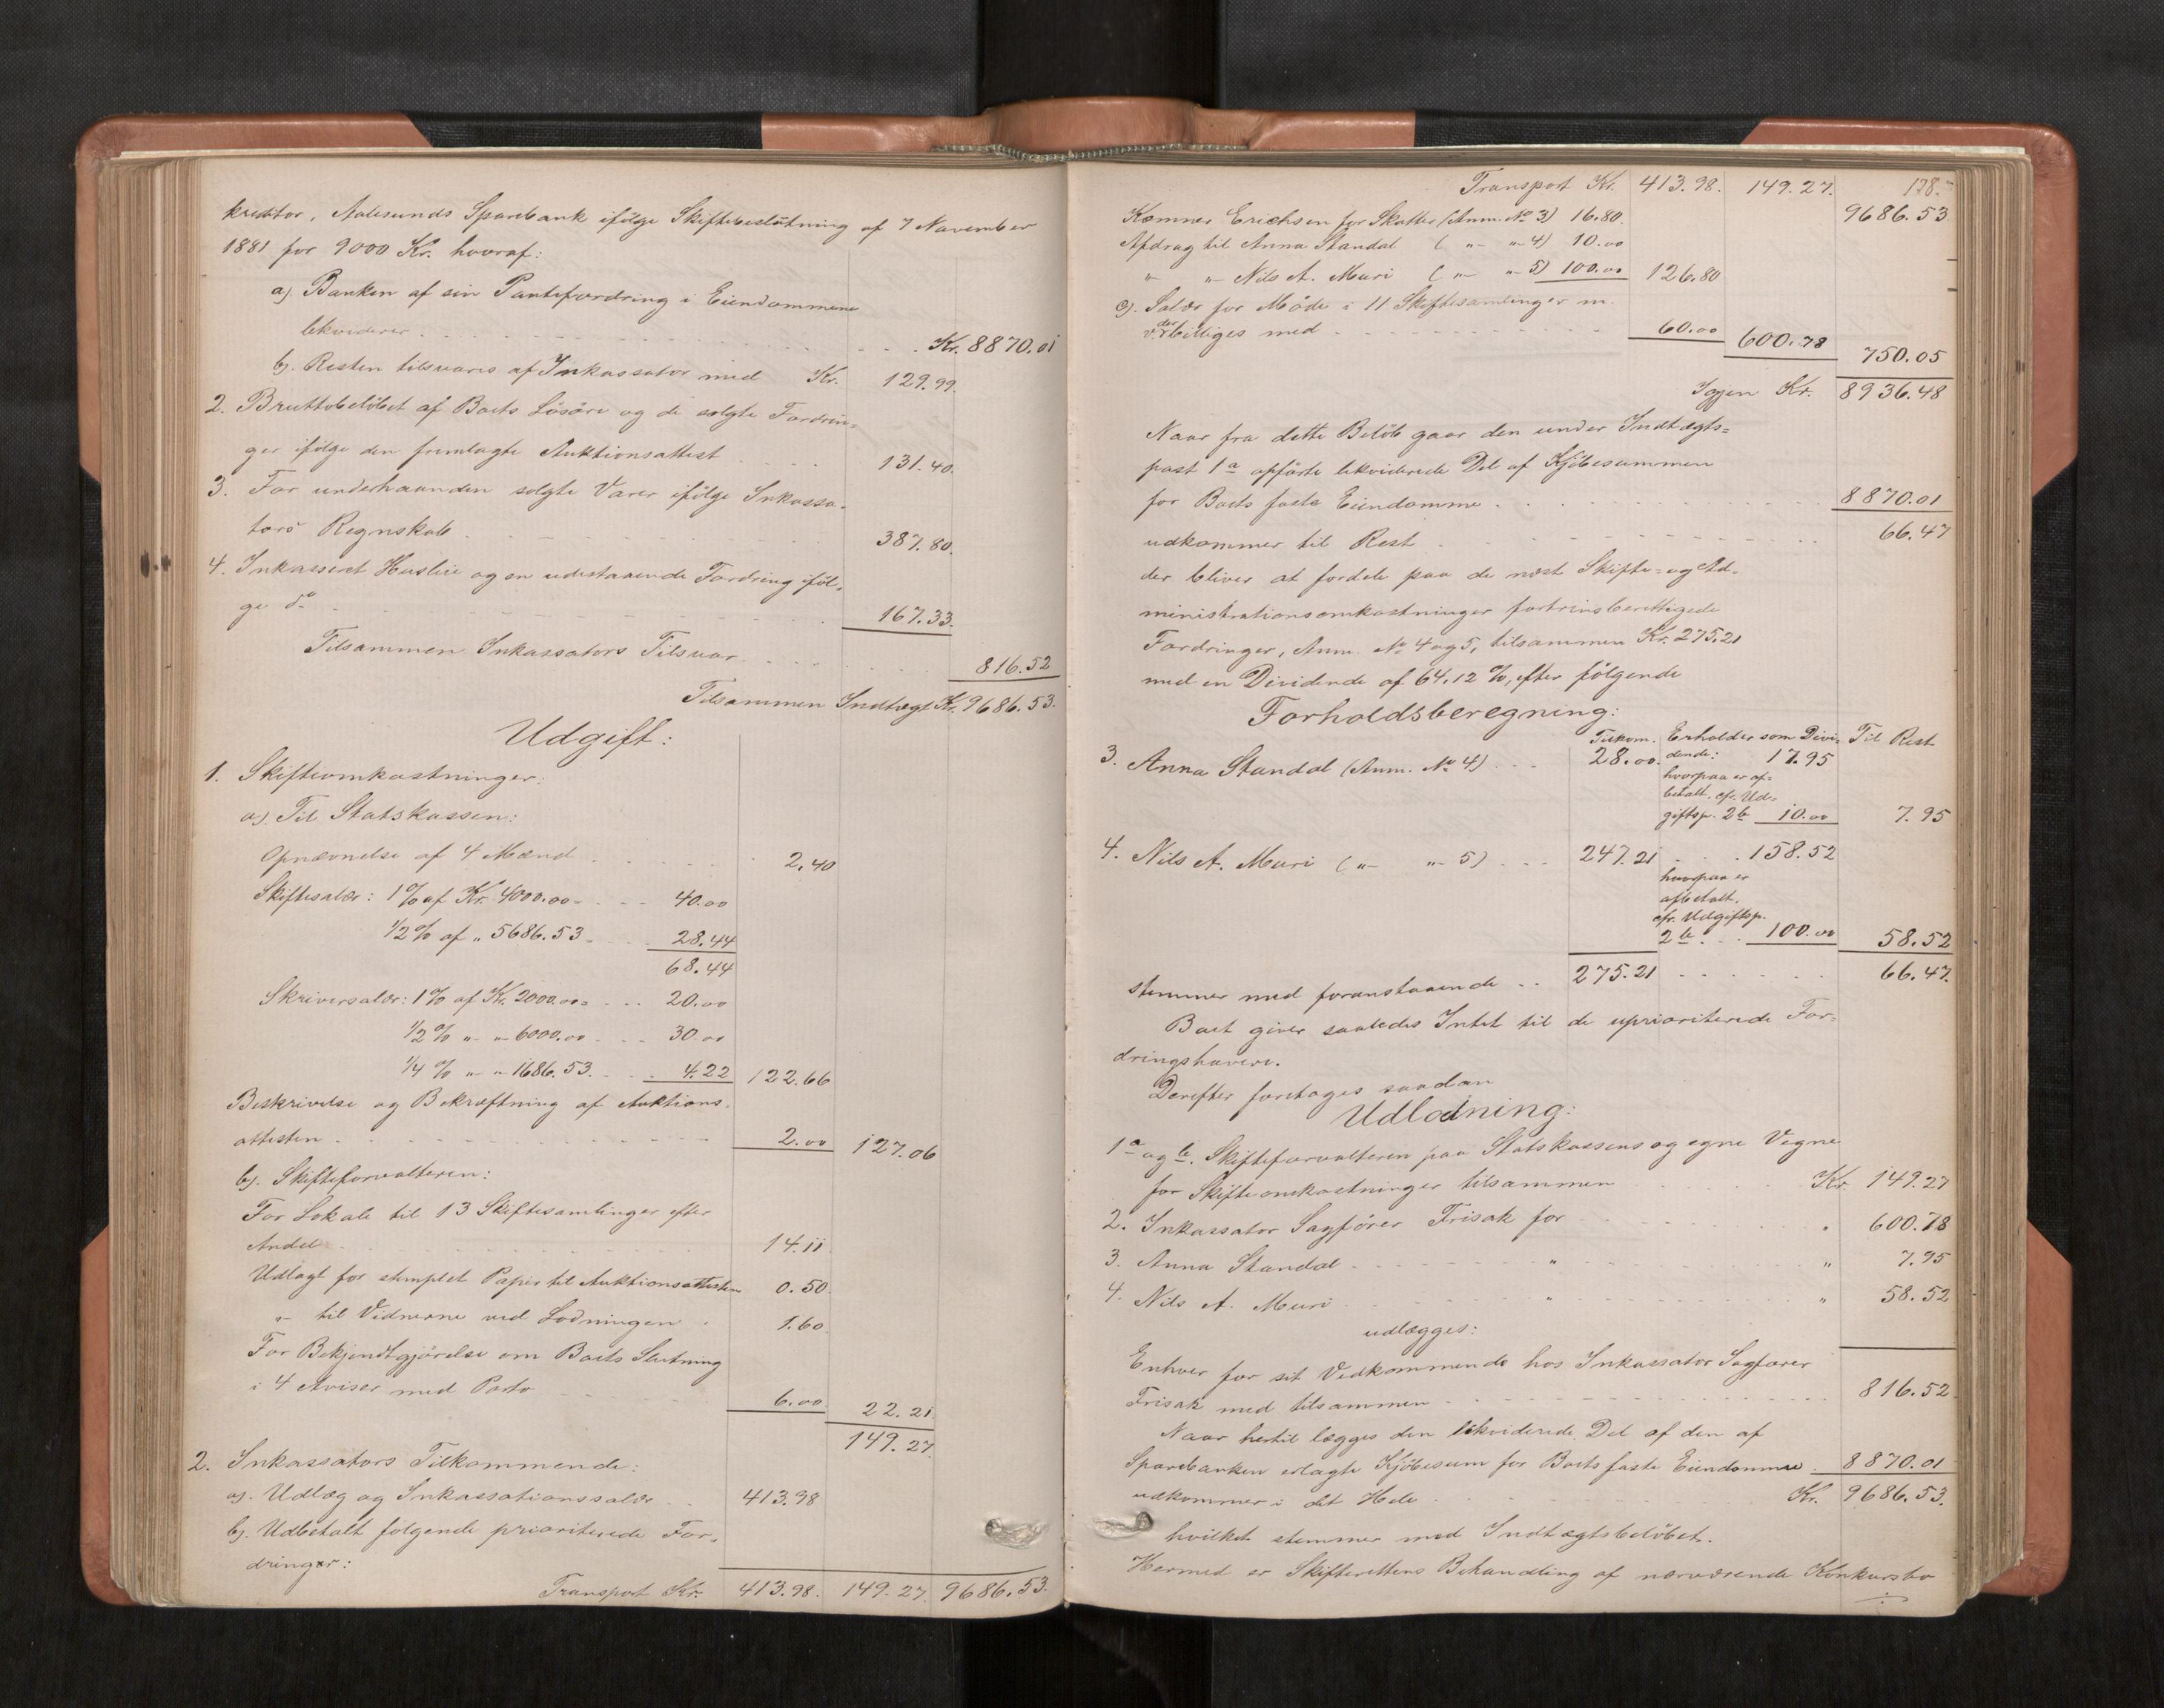 kreditor, Aalesunds Sparebank ifølge Skiftebeslutning af 7 November
1881 for 9000 Kr. hvoraf:
a). Banken af sin Pantefordring i Eiendommene
likviderer . . . Kr. 8870.01
b). Resten tilsvares af Inkassator med Kr. 129.99.
2. Bruttobeløbet af Boets Løsøre og de solgte Fordrin=
ger ifølge den fremlagte Auktionsattest 131.40.
3. For underhaanden solgte Varer ifølge Inkassa-
tors Regnskab 387.80.
4. Inkasseret Husleie og en udestaaende Fordring iføl-
ge do 167.33.
Tilsammen Inkassators Tilsvar 816.52
Tilsammen Indtægt Kr. 9686.53.
Udgift:
1. Skifteomkostninger:
a). Til Statskassen:
Opnævnelse af 4 Mænd 2.40
Skiftesalær: 1 % af Kr. 4000.00 = 40.00
1/2 % af " 5686.53 28.44
68.44
Skriversalær: 1 % af Kr. 2000.00 = 20.00
1/2 % " " 6000.00 30.00
1/4 % " " 1686.53. 4.22 122.66
Beskrivelse og Bekræftning af Auktions-
attesten 2.00 127.06
b). Skifteforvalteren:
For Lokale til 13 Skiftesamlinger efter
Andel 14.11
Udlagt for stemplet Papir til Auktionsattesten 0.50
" til Vidnerne ved Lodningen 1.60
For Bekjendtgjørelse om Boets Slutning
i 4 Aviser med Porto 6.00 22.21
149.27
2. Inkassators Tilkommende:
a). Udlæg og Inkassationssalær 413.98
b). Udbetalt følgende prioriterede For-
dringer:
Transport Kr. 413.98. 149.27. 9686.53.
178.
Transport Kr. 413.98. 149.27. 9686.53
Kæmner Erichsen for Skatter (Anm. No 3) 16.80.
Afdrag til Anna Standal ( " " 4) 10.00
" " Nils A. Muri ( " " 5) 100.00 126.80
c). Salær for Møde i 11 Skiftesamlinger m.
v. der billiges med 60.00 600.78 750.05
Igjen Kr. 8936.48
Naar fra dette Beløb gaar den under Indtægts=
post 1 a opførte likviderede Del af Kjøbesummen
for Boets faste Eiendomme 8870.01
udkommer til Rest 66.47
der bliver at fordele paa de næst Skifte- og Ad-
ministrationsomkostninger fortrinsberettigede
Fordringer, Anm. No 4 og 5, tilsammen Kr. 275.21
med en Dividende af 64.12 %, efter følgende
Forholdsberegning:
Tilkom. Erholder som Divi- Til Rest
3. Anna Standal (Anm. No 4) 28.00. dende: 17.95
hvorpaa er af=
betalt. cfr. Ud-
giftsp. 2 b 10.00 7.95
4. Nils A. Muri ( " " 5) 247.21 158.52
hvorpaa er
afbetalt.
cfr. Udgiftsp.
2 b. 100.00 58.52
stemmer med foranstaaende 275.21 66.47.
Boet giver saaledes Intet til de uprioriterede For-
dringshavere.
Derefter foretages saadan
Udlodning:
1 a og b. Skifteforvalteren paa Statskassens og egne Vegne
for Skifteomkostninger tilsammen Kr. 149.27
2. Inkassator Sagfører Frisak for " 600.78
3. Anna Standal " " 7.95
4. Nils A. Muri " " 58.52
udlægges:
Enhver for sit Vedkommende hos Inkassator Sagfører
Frisak med tilsammen 816.52
Naar hertil lægges den likviderede Del af den af
Sparebanken erlagte Kjøbesum for Boets faste Eiendomme 8870.01
udkommer i det Hele Kr. 9686.53.
hvilket stemmer med Indtægtsbeløbet.
Hermed er Skifterettens Behandling af nærværende Konkursbo